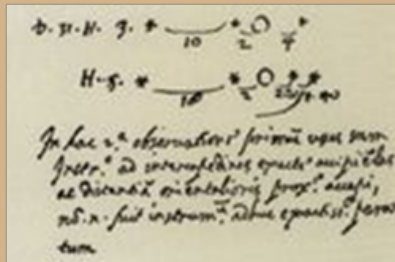 D. 31. H. 3. * 10 * 2 O 4 *
H. 5. * 10 * 2 O
In hac 2.ª observatione primũ usus sum
Instr.º ad intercapedines exacte accipiẽdas
ac distantiã orientalioris prox.ᵉ accepi,
nõ. n. fuit instrum.ᵗᵘ adhuc exactiss.ᵉ para
tum